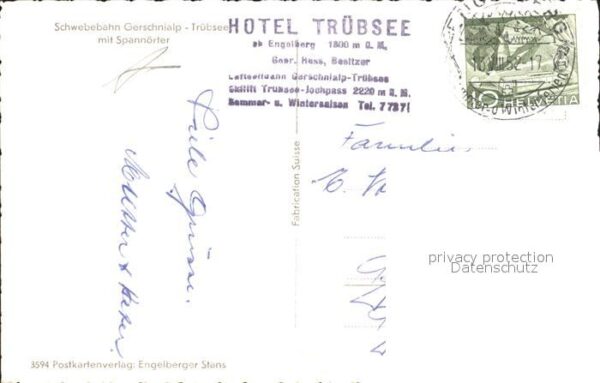 Schwebebahn Gerschnialp - Trübsee
mit Spannörter
HOTEL TRÜBSEE
ob Engelberg 1800 m ü. M.
Gebr. Hess, Besitzer
Luftseilbahn Gerschnialp-Trübsee
Skilift Trübsee-Jochpass 2220 m ü. M.
Sommer- u. Wintersaison Tel. 77371
HELVETIA
Familie
Viele Grüsse.
Mutter &
Fabrication Suisse
privacy protection
Datenschutz
3594 Postkartenverlag: Engelberger Stans